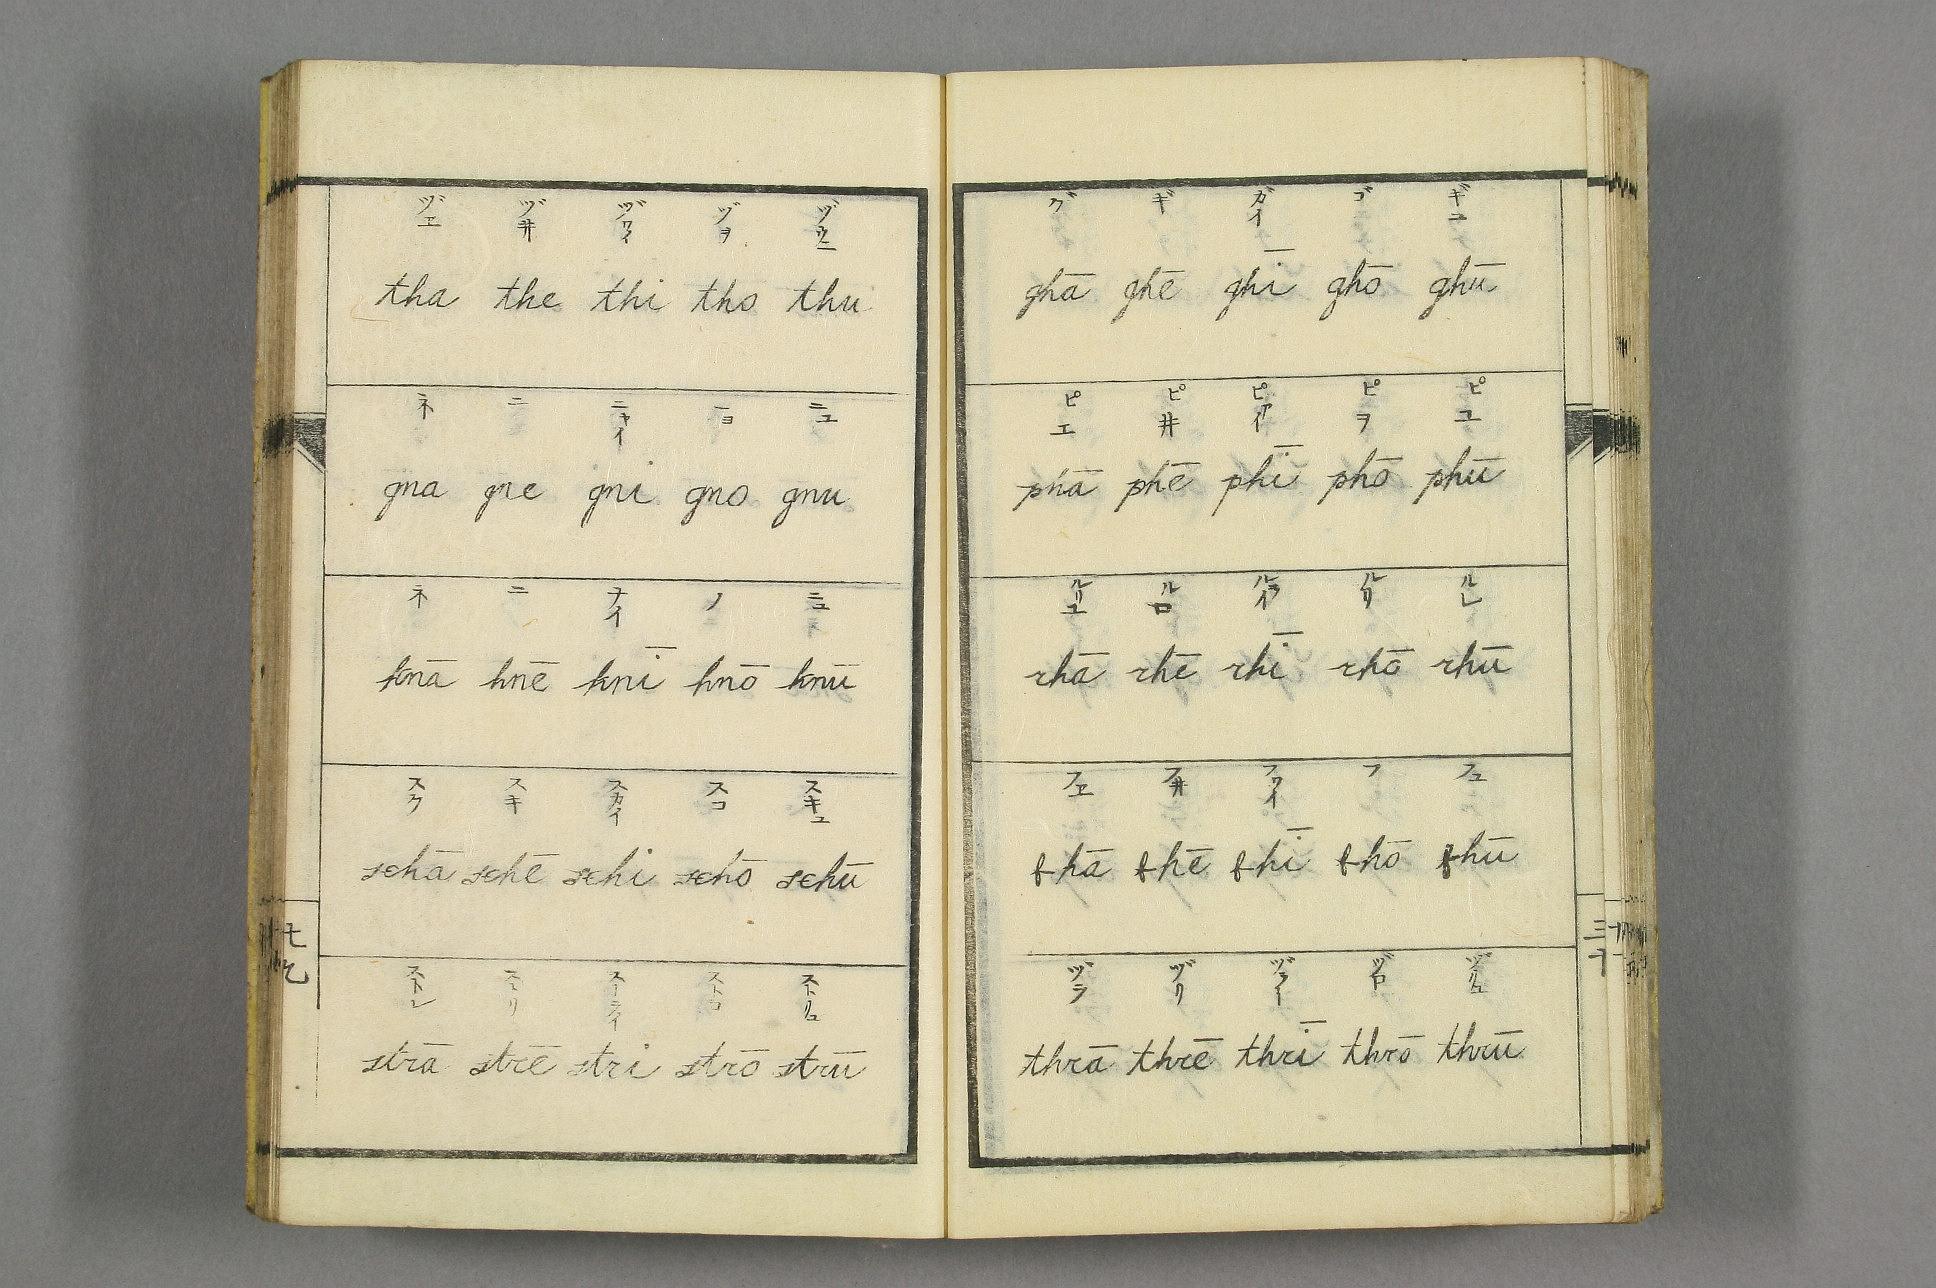 ヅヱ ヅ井 ヅワイ ヅヲ
tha the thi tho thu
ネ ニ ニャイ ニョ ニュ
gna gne gni gno gnu
ネ ニ ナイ ノ ニュ
knā knē knī knō knū
スケ スキ スカイ スコ スキュ
schā schē schi schō schū
ストレ ストラィ ストリュ
strā strē stri strō strū
ゲ ギ ガイ ゴ ギユ
ghā ghē ghī ghō ghū
ピエ ピ井 ピアイ ピヲ ピユ
phā phē phī phō phū
rhā rhē rhī rhō rhū
フヱ フ井 フワイ フ フユ
fhā fhē fhī fhō fhū
ヅラ ヅリ ヅライ ヅロ ヅリュ
thrā thrē thrī thrō thrū